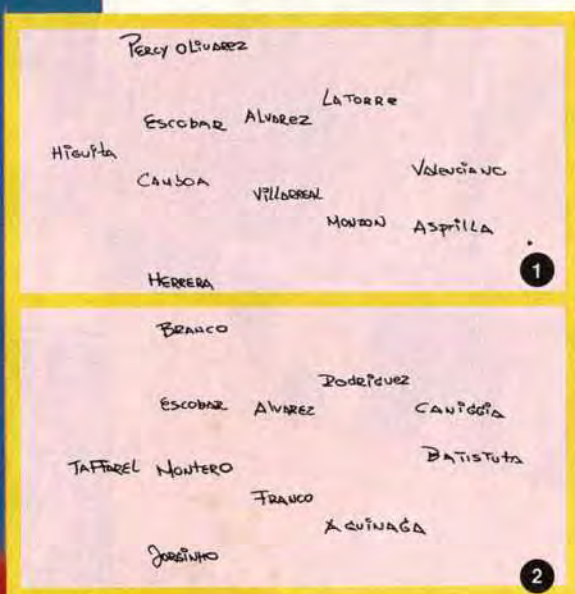 PERCY OLIVAREZ
LATORRE
ESCOBAR ALVAREZ
HIGUITA
VALENCIANO
CAMBOA
VILLARREAL
MONZON ASPRILLA
1
HERRERA
BRANCO
RODRIGUEZ
ESCOBAR ALVAREZ CANIGGIA
BATISTUTA
TAFFAREL MONTERO
FRANCO
AQUINAGA
JORGINHO
2